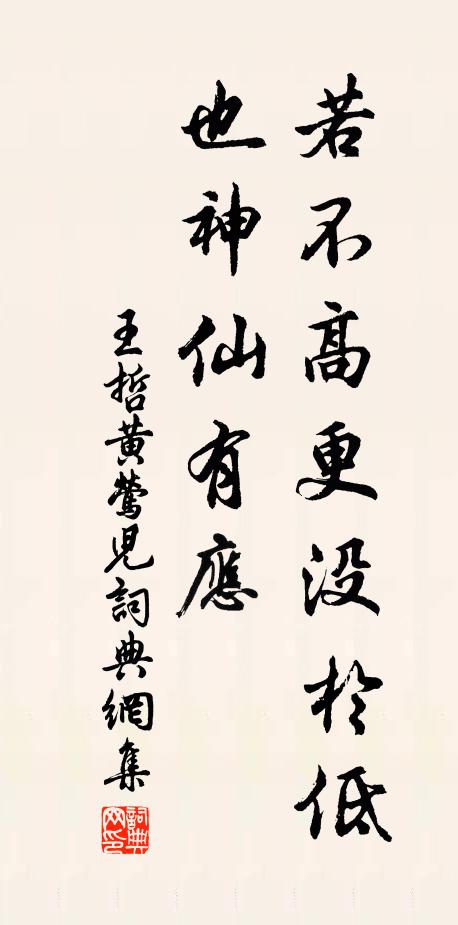 若不高更没於低
也神仙有應
王哲黄鶯児詞典網集
詞典網印